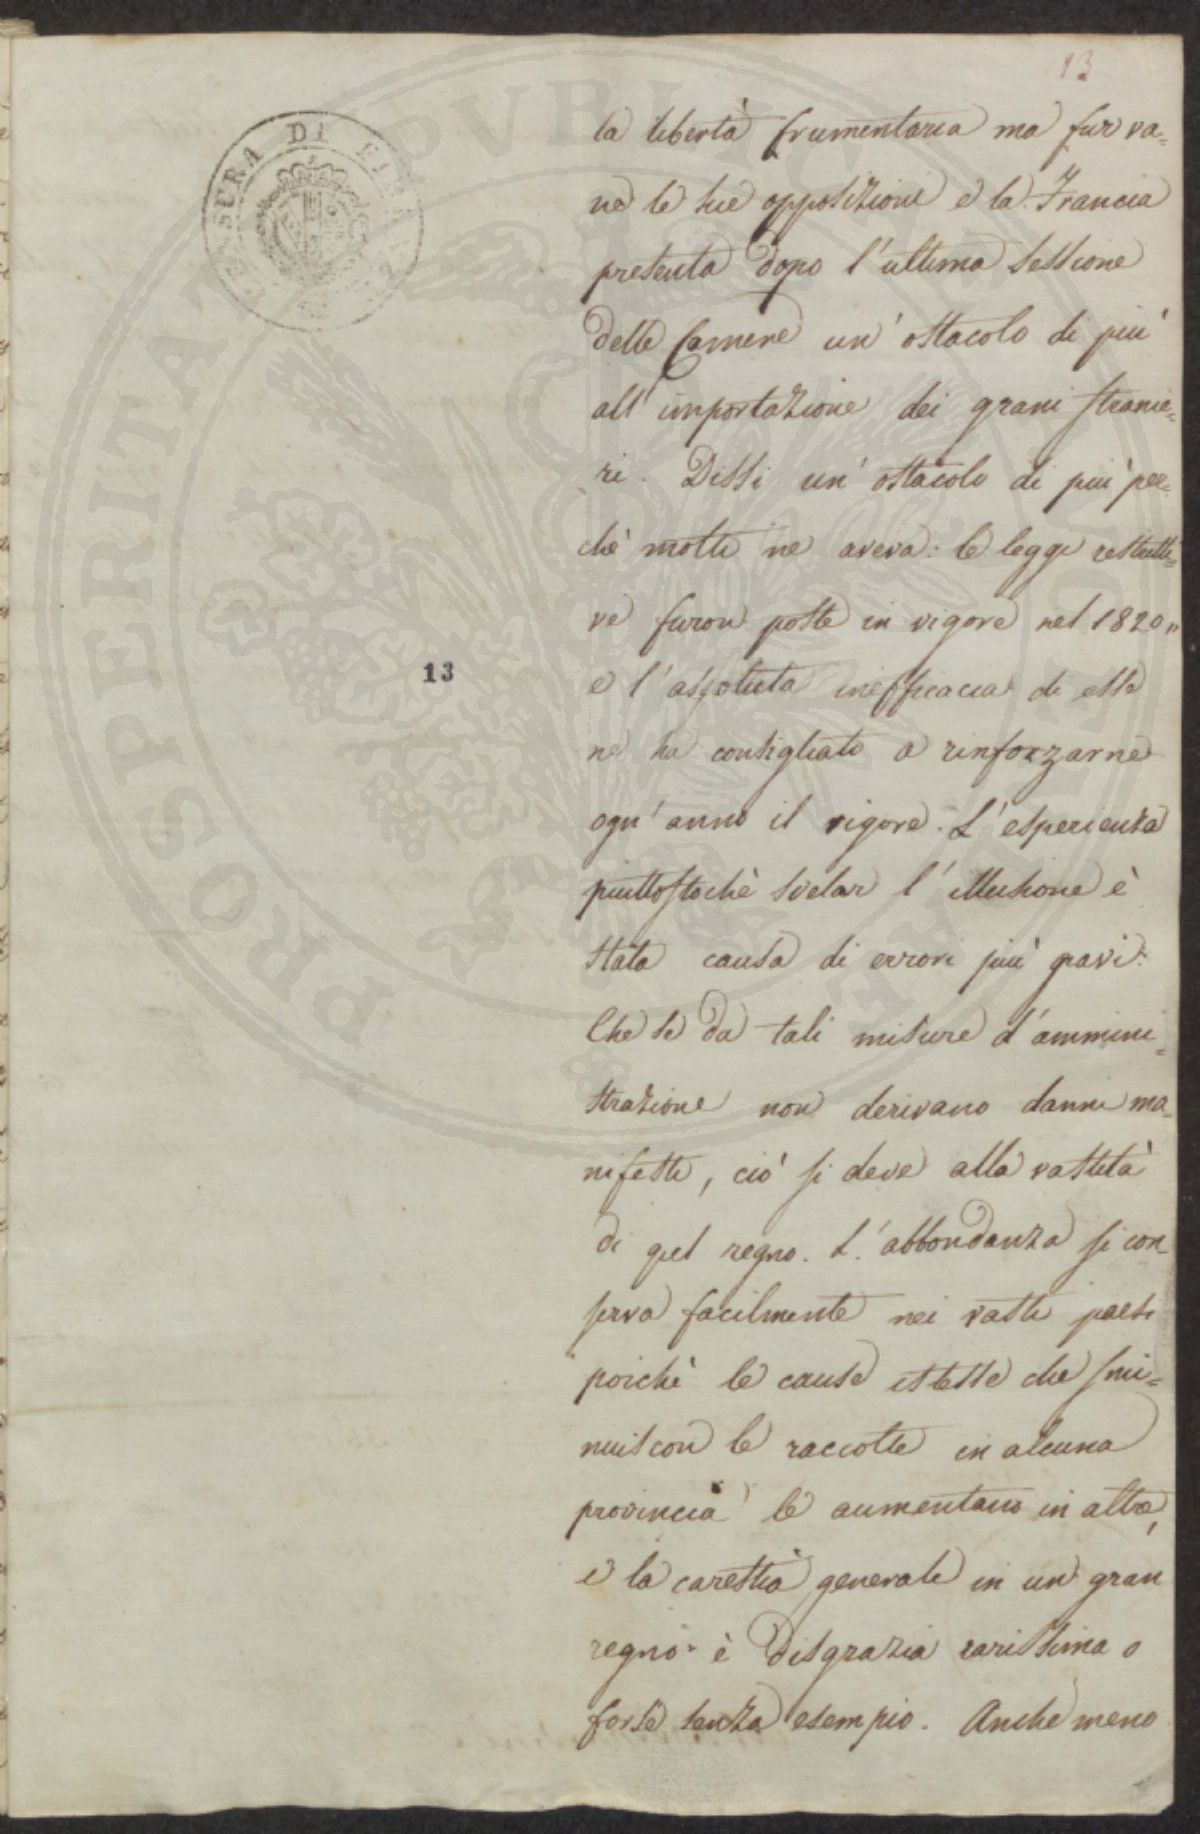 13
la libertà frumentaria ma fur va=
ne le sue opposizioni e la Francia
presenta dopo l'ultima sessione
delle Camere un' ostacolo di più
all' importazione dei grani stranie=
ri. Dissi un' ostacolo di più per=
chè molti ne aveva: le leggi restritti=
ve furon poste in vigore nel 1820
e l'assoluta inefficacia di esse
ne ha consigliato a rinforzarne
ogn' anno il rigore. L'esperienza
piuttostochè svelar l'illusione è
stata causa di errori più gravi:
Che se da tali misure d'ammini=
strazione non derivano danni ma=
nifesti, ciò si deve alla vastità
di quel regno. L'abbondanza si con=
serva facilmente nei vasti paesi
poichè le cause istesse che smi=
nuiscon le raccolte in alcuna
provincia le aumentano in altre,
e la carestia generale in un gran
regno è disgrazia rarissima o
forse senza esempio. Anche meno
13
CENSURA DI
PROSPERITATI PVBLICAE